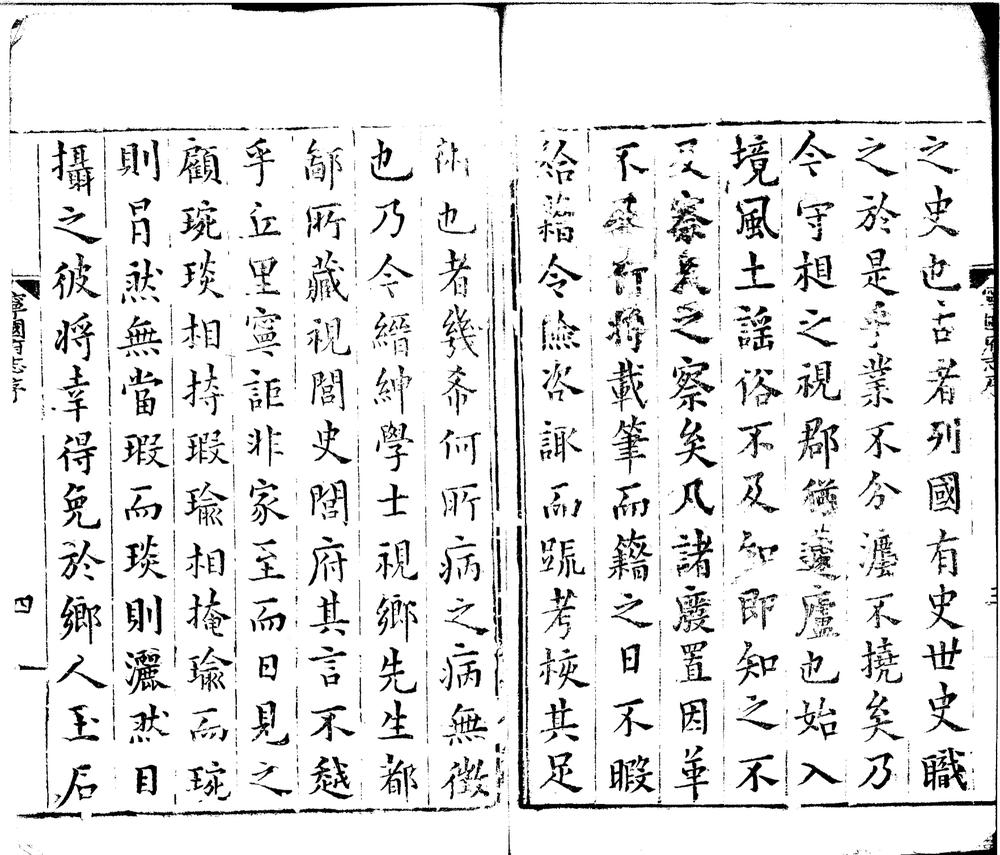 之史也古者列國有史世史職
之於是乎業不分灋不撓矣乃
今守相之視郡猶蘧廬也始入
境風土謠俗不及知即知之不
及察矣之察矣凡諸廢置因革
不及行將載筆而籍之日不暇
給藉令諮諏而䟽考校其足
也者幾希何所病之病無徵
也乃今縉紳學士視鄉先生都
鄙所藏視閭史閭府其言不越
乎丘里寧詎非家至而日見之
顧琬琰相持瑕瑜相掩瑜而琬
則冐然無當瑕而琰則灑然目
攝之彼將幸得免於鄉人玉石
寧國府志序
四
寧國府志序